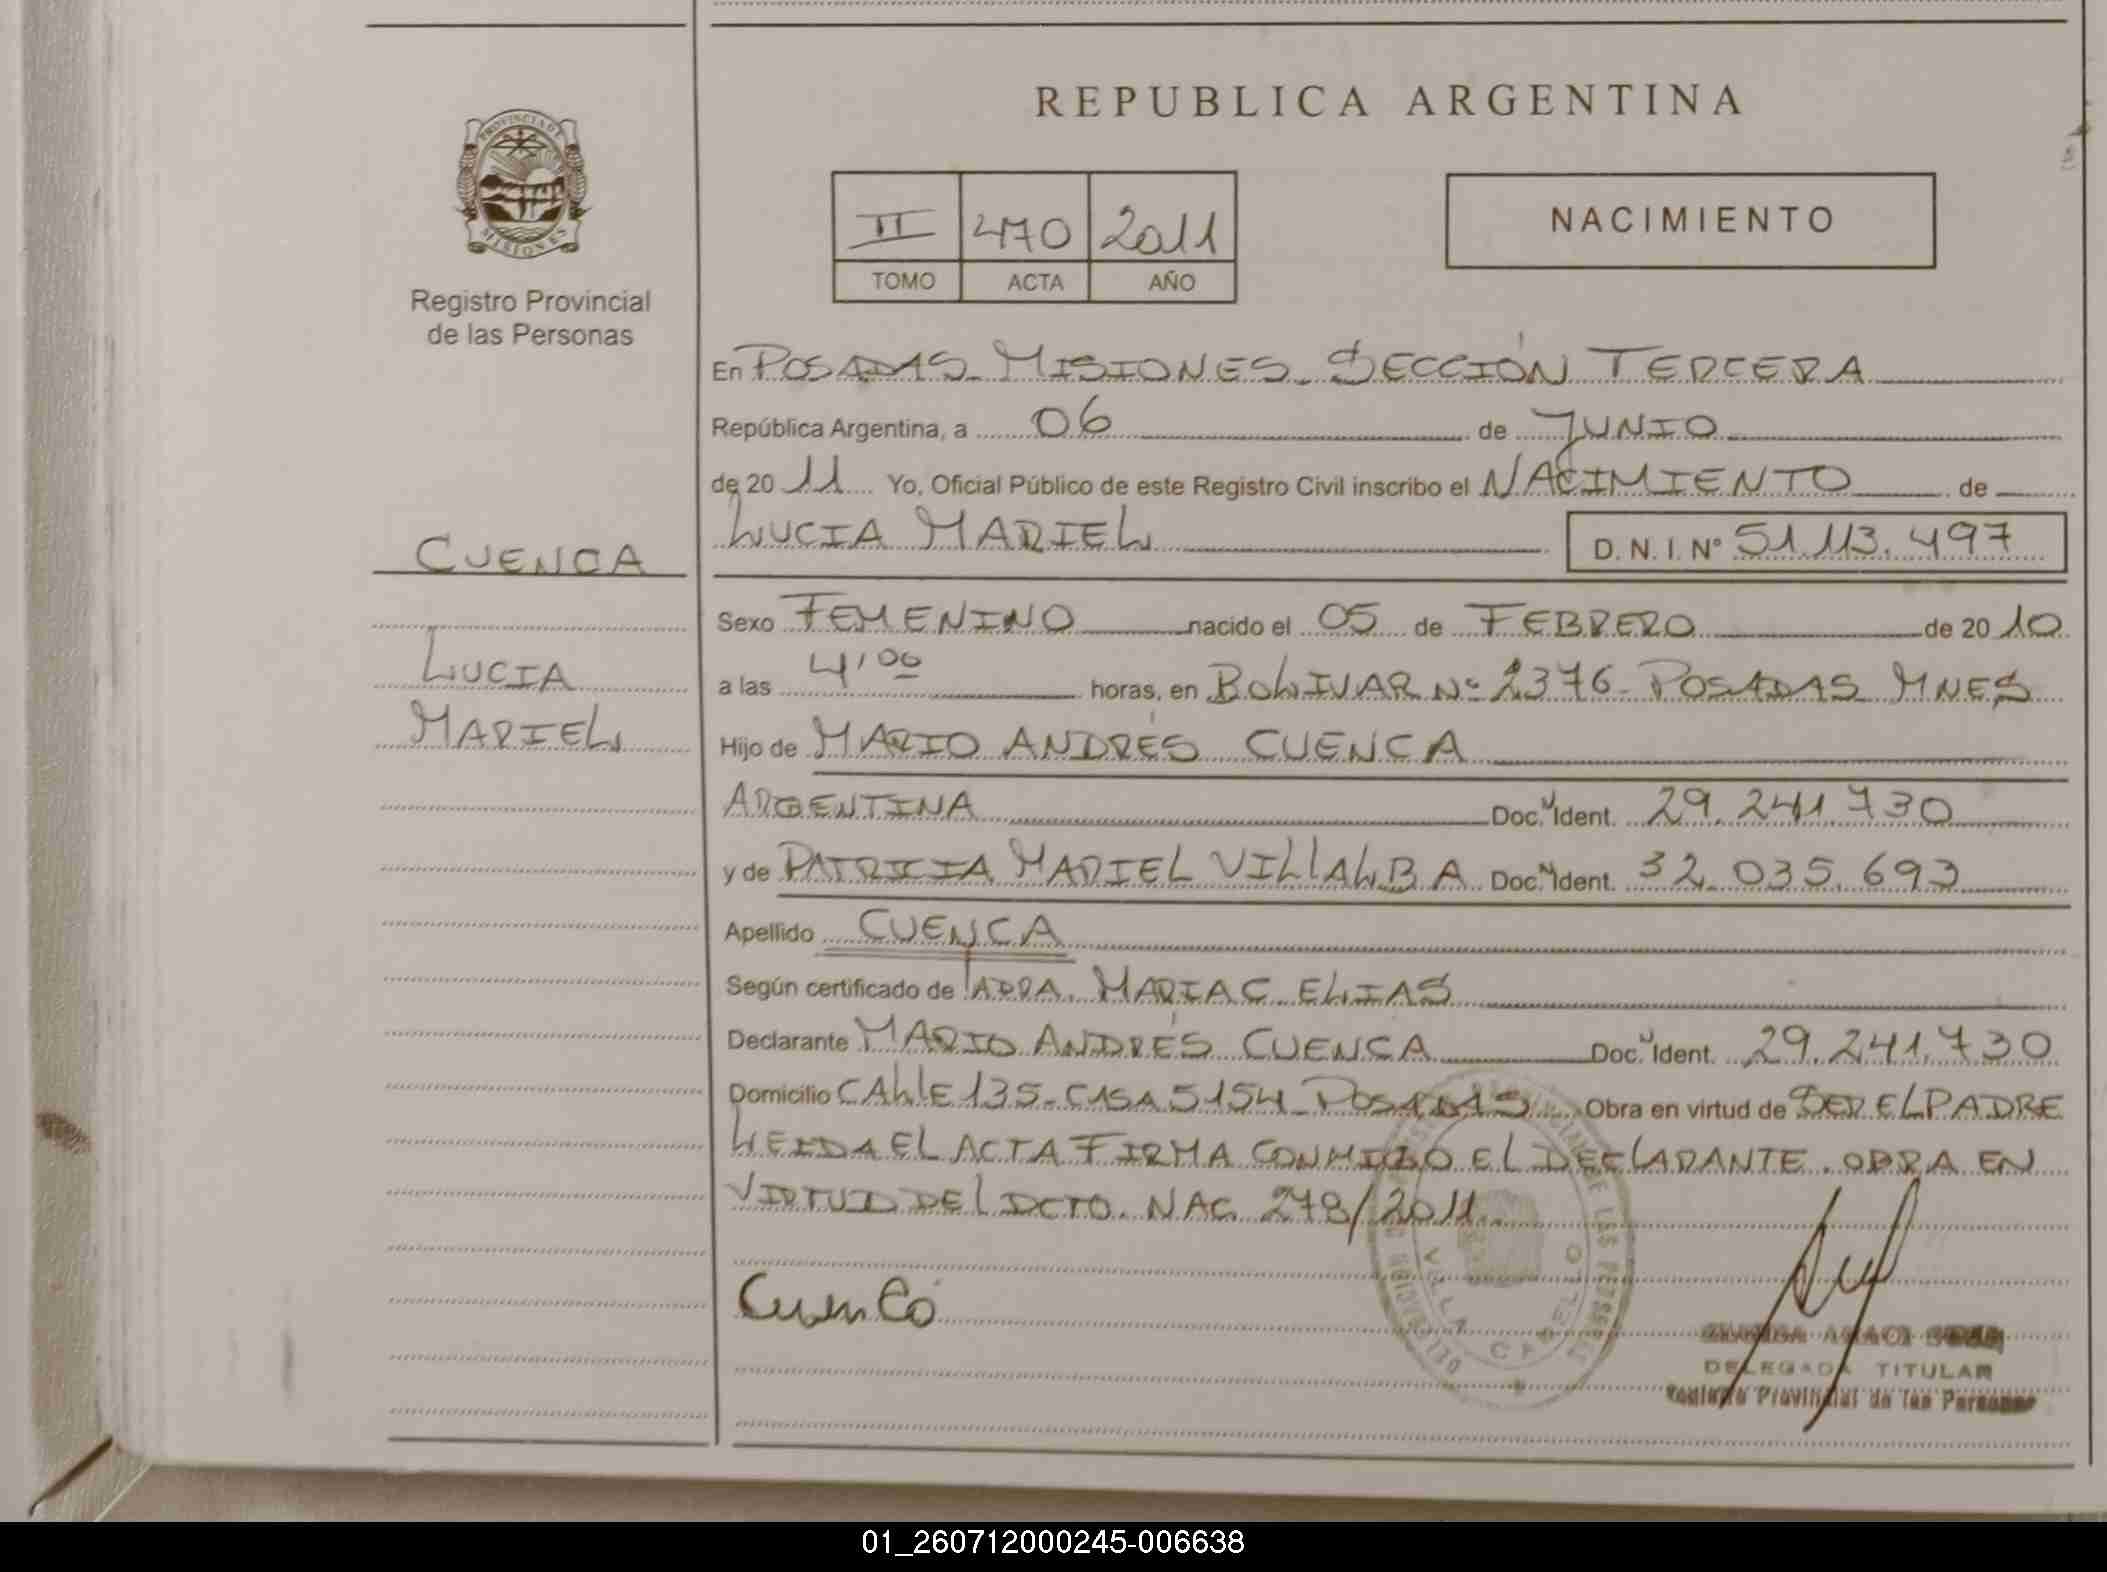 REPUBLICA ARGENTINA
PROVINCIA DE
MISIONES
Registro Provincial
de las Personas
II 470 2011
TOMO ACTA AÑO
NACIMIENTO
En POSADAS - MISIONES - SECCIÓN TERCERA
República Argentina, a 06 de JUNIO
de 20 11 Yo, Oficial Público de este Registro Civil inscribo el NACIMIENTO de
LUCIA MARIEL D. N. I. Nº 51.113.497
CUENCA
LUCIA
MARIEL
Sexo FEMENINO nacido el 05 de FEBRERO de 20 10
a las 4,00 horas, en BOLIVAR Nº 2376 - POSADAS MNES
Hijo de MARIO ANDRÉS CUENCA
ARGENTINA Doc. Ident. 29.241.730
y de PATRICIA MARIEL VILLALBA Doc. Ident. 32.035.693
Apellido CUENCA
Según certificado de MARIA C ELIAS
Declarante MARIO ANDRÉS CUENCA Doc. Ident. 29.241.730
Domicilio CALLE 135 - CASA 5154 - POSADAS Obra en virtud de SER EL PADRE
LEIDA EL ACTA FIRMA CONMIGO EL DECLARANTE. OBRA EN
VIRTUD DEL DCTO. NAC. 278/2011.
VILLA CABELLO
DELEGADA TITULAR
Registro Provincial de las Personas
01_260712000245-006638